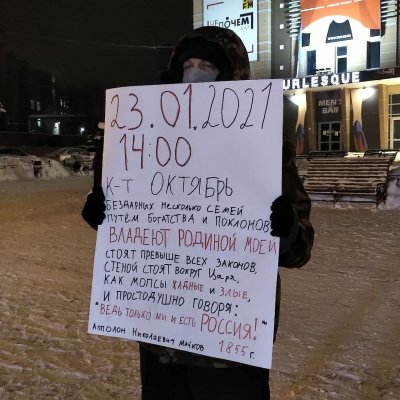 ЧЕ ПОЧЕМ
FM
BURLESQUE
MEN'S
BAR
23.01.2021
14:00
К-Т ОКТЯБРЬ
БЕЗДАРНЫХ НЕСКОЛЬКО СЕМЕЙ
ПУТЁМ БОГАТСТВА И ПОКЛОНОВ
ВЛАДЕЮТ РОДИНОЙ МОЕЙ
СТОЯТ ПРЕВЫШЕ ВСЕХ ЗАКОНОВ,
СТЕНОЙ СТОЯТ ВОКРУГ ЦАРЯ,
КАК МОПСЫ ЖАДНЫЕ И ЗЛЫЕ,
И ПРОСТОДУШНО ГОВОРЯ:
"ВЕДЬ ТОЛЬКО МЫ И ЕСТЬ РОССИЯ!"
АПОЛЛОН НИКОЛАЕВИЧ МАЙКОВ 1855 г.